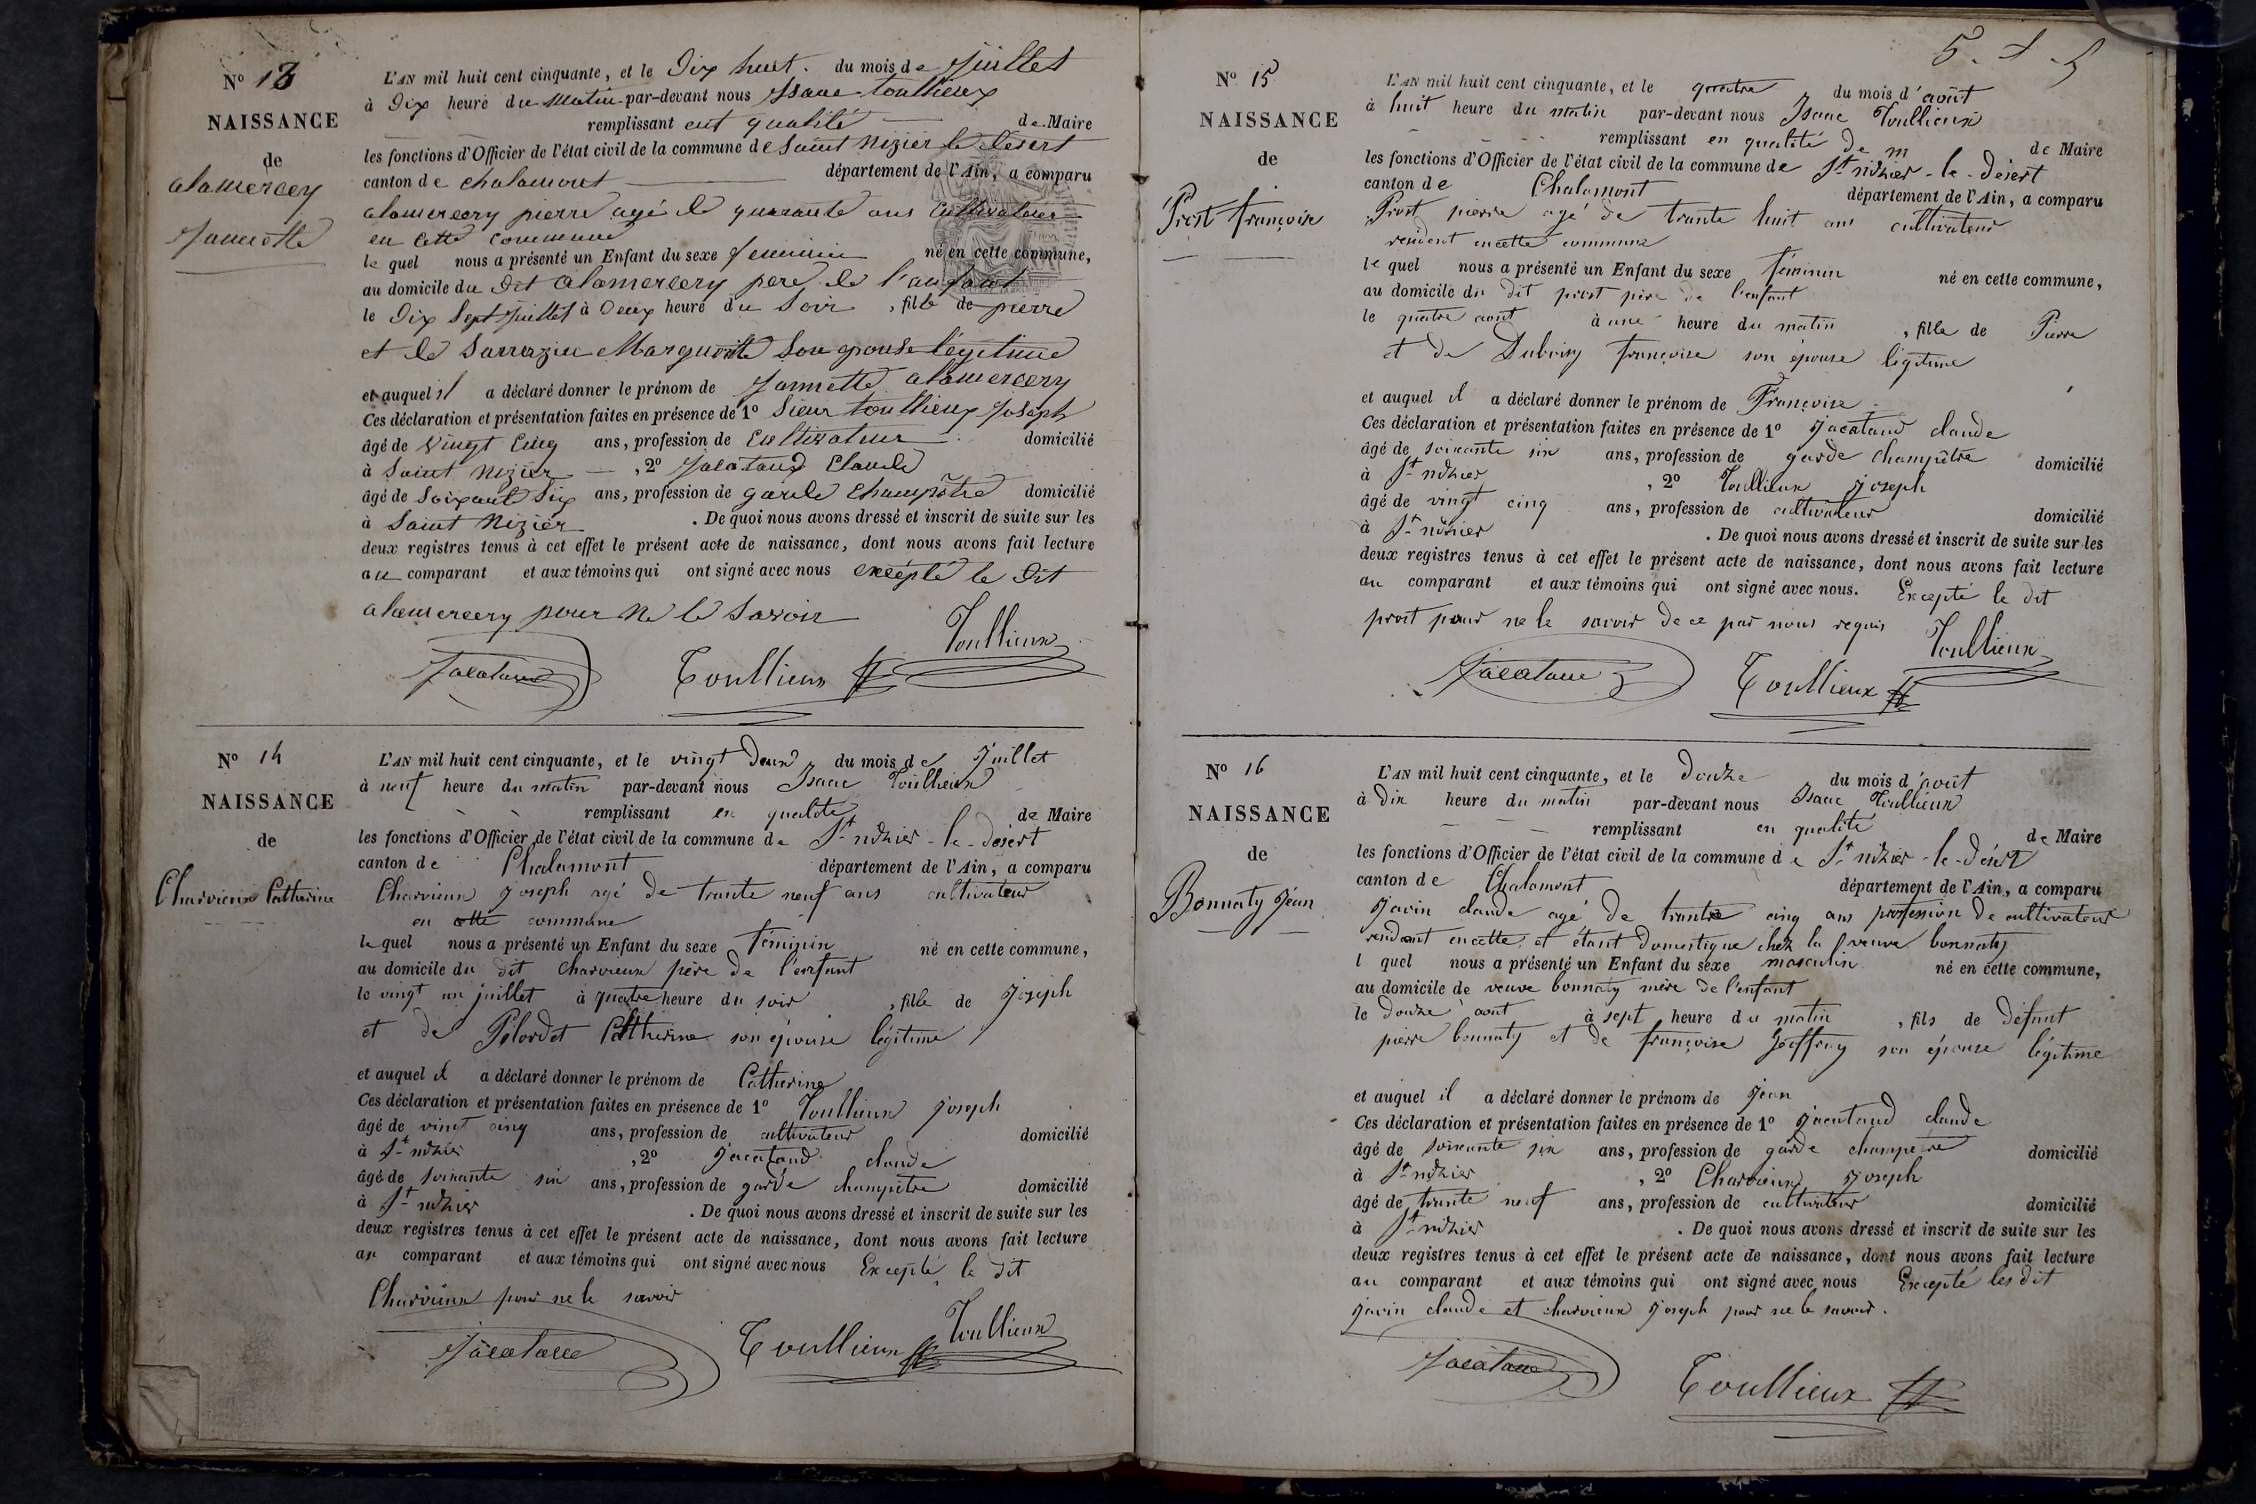 N° 13
NAISSANCE
de
alamercery
Jannette
L'AN mil huit cent cinquante, et le Dix huit. du mois de Juillet
à Dix heure du Matin par-devant nous Isaac toullieux
remplissant ent qualité de Maire
les fonctions d'Officier de l'état civil de la commune de Saint Nizier le Desert
canton de chalamont département de l'Ain, a comparu
alamercery pierre agé de quarante ans Cultivateur
en cette commune
le quel nous a présenté un Enfant du sexe feminin né en cette commune,
au domicile du Dit alamercery pere de l'anfant
le Dix Sept Juillet à Deux heure du Soir , fille de pierre
et de Sarrazin Marguerite Son epouse légitime
et auquel il a déclaré donner le prénom de Jannette alamercery
Ces déclaration et présentation faites en présence de 1° Sieur toullieux Joseph
âgé de Vingt Cinq ans, profession de Cultivateur domicilié
à Saint Nizier , 2° Jacataud Claude
âgé de Soixante Six ans, profession de garde Champêtre domicilié
à Saint Nizier . De quoi nous avons dressé et inscrit de suite sur les
deux registres tenus à cet effet le présent acte de naissance, dont nous avons fait lecture
au comparant et aux témoins qui ont signé avec nous excépté le Dit
alamercery pour Ne le Savoir
Jacataud Toullieux Toullieux
N° 14
NAISSANCE
de
Charvieux Catherine
L'AN mil huit cent cinquante, et le vingt Deux du mois de Juillet
à neuf heure du matin par-devant nous Isaac Toullieux
remplissant en qualité de Maire
les fonctions d'Officier de l'état civil de la commune de St nizier-le-Desert
canton de Chalamont département de l'Ain, a comparu
Charvieux Joseph agé de trante neuf ans cultivateur
en cette commune
le quel nous a présenté un Enfant du sexe féminin né en cette commune,
au domicile du dit charvieux père de l'enfant
le vingt un juillet à quatre heure du soir , fille de Joseph
et de Pelordet Catherine son épouse légitime
et auquel il a déclaré donner le prénom de Catherine
Ces déclaration et présentation faites en présence de 1° Toullieux joseph
âgé de vint cinq ans, profession de cultivateur domicilié
à St nizier , 2° Jacataud claude
âgé de soixante six ans, profession de garde champêtre domicilié
à St nizier . De quoi nous avons dressé et inscrit de suite sur les
deux registres tenus à cet effet le présent acte de naissance, dont nous avons fait lecture
au comparant et aux témoins qui ont signé avec nous Excepté le dit
Charvieux pour ne le savoir
Jacataud Toullieux Toullieux
N° 15
NAISSANCE
de
Prost françoise
L'AN mil huit cent cinquante, et le quatre du mois d'août
à huit heure du matin par-devant nous Isaac Toullieux
remplissant en qualité de m de Maire
les fonctions d'Officier de l'état civil de la commune de St nizier-le-Désert
canton de Chalamont département de l'Ain, a comparu
Prost pierre agé de trante huit ans cultivateur
résident en cette commune
le quel nous a présenté un Enfant du sexe féminin né en cette commune,
au domicile du dit prost père de l'enfant
le quatre aout à une heure du matin , fille de Pierre
et de Duboisy françoise son épouse légitime
et auquel il a déclaré donner le prénom de Françoise
Ces déclaration et présentation faites en présence de 1° Jacataud claude
âgé de soixante six ans, profession de garde champêtre domicilié
à St nizier , 2° Toullieux joseph
âgé de vingt cinq ans, profession de cultivateur domicilié
à St nizier . De quoi nous avons dressé et inscrit de suite sur les
deux registres tenus à cet effet le présent acte de naissance, dont nous avons fait lecture
au comparant et aux témoins qui ont signé avec nous. Excepté le dit
prost pour ne le savoir de ce par nous requis
Jacataud Toullieux Toullieux
N° 16
NAISSANCE
de
Bonnaty Jean
L'AN mil huit cent cinquante, et le Douze du mois d'août
à Dix heure du matin par-devant nous Isaac Toullieux
remplissant en qualité de Maire
les fonctions d'Officier de l'état civil de la commune de St nizier-le-Désert
canton de Chalamont département de l'Ain, a comparu
Javin claude agé de trante cinq ans profession de cultivateur
résidant en cette et étant Domestique chez la veuve bonnaty
l quel nous a présenté un Enfant du sexe masculin né en cette commune,
au domicile de veuve bonnaty mère de l'enfant
le Douze aout à sept heure du matin , fils de défunt
pierre bonnaty et de françoise Geoffray son épouse légitime
et auquel il a déclaré donner le prénom de Jean
Ces déclaration et présentation faites en présence de 1° Jacataud claude
âgé de soixante six ans, profession de garde champetre domicilié
à St nizier , 2° Charvieux Joseph
âgé de trante neuf ans, profession de cultivateur domicilié
à St nizier . De quoi nous avons dressé et inscrit de suite sur les
deux registres tenus à cet effet le présent acte de naissance, dont nous avons fait lecture
au comparant et aux témoins qui ont signé avec nous Excepté les dit
javin claude et charvieux Joseph pour ne le savoir.
Jacataud Toullieux